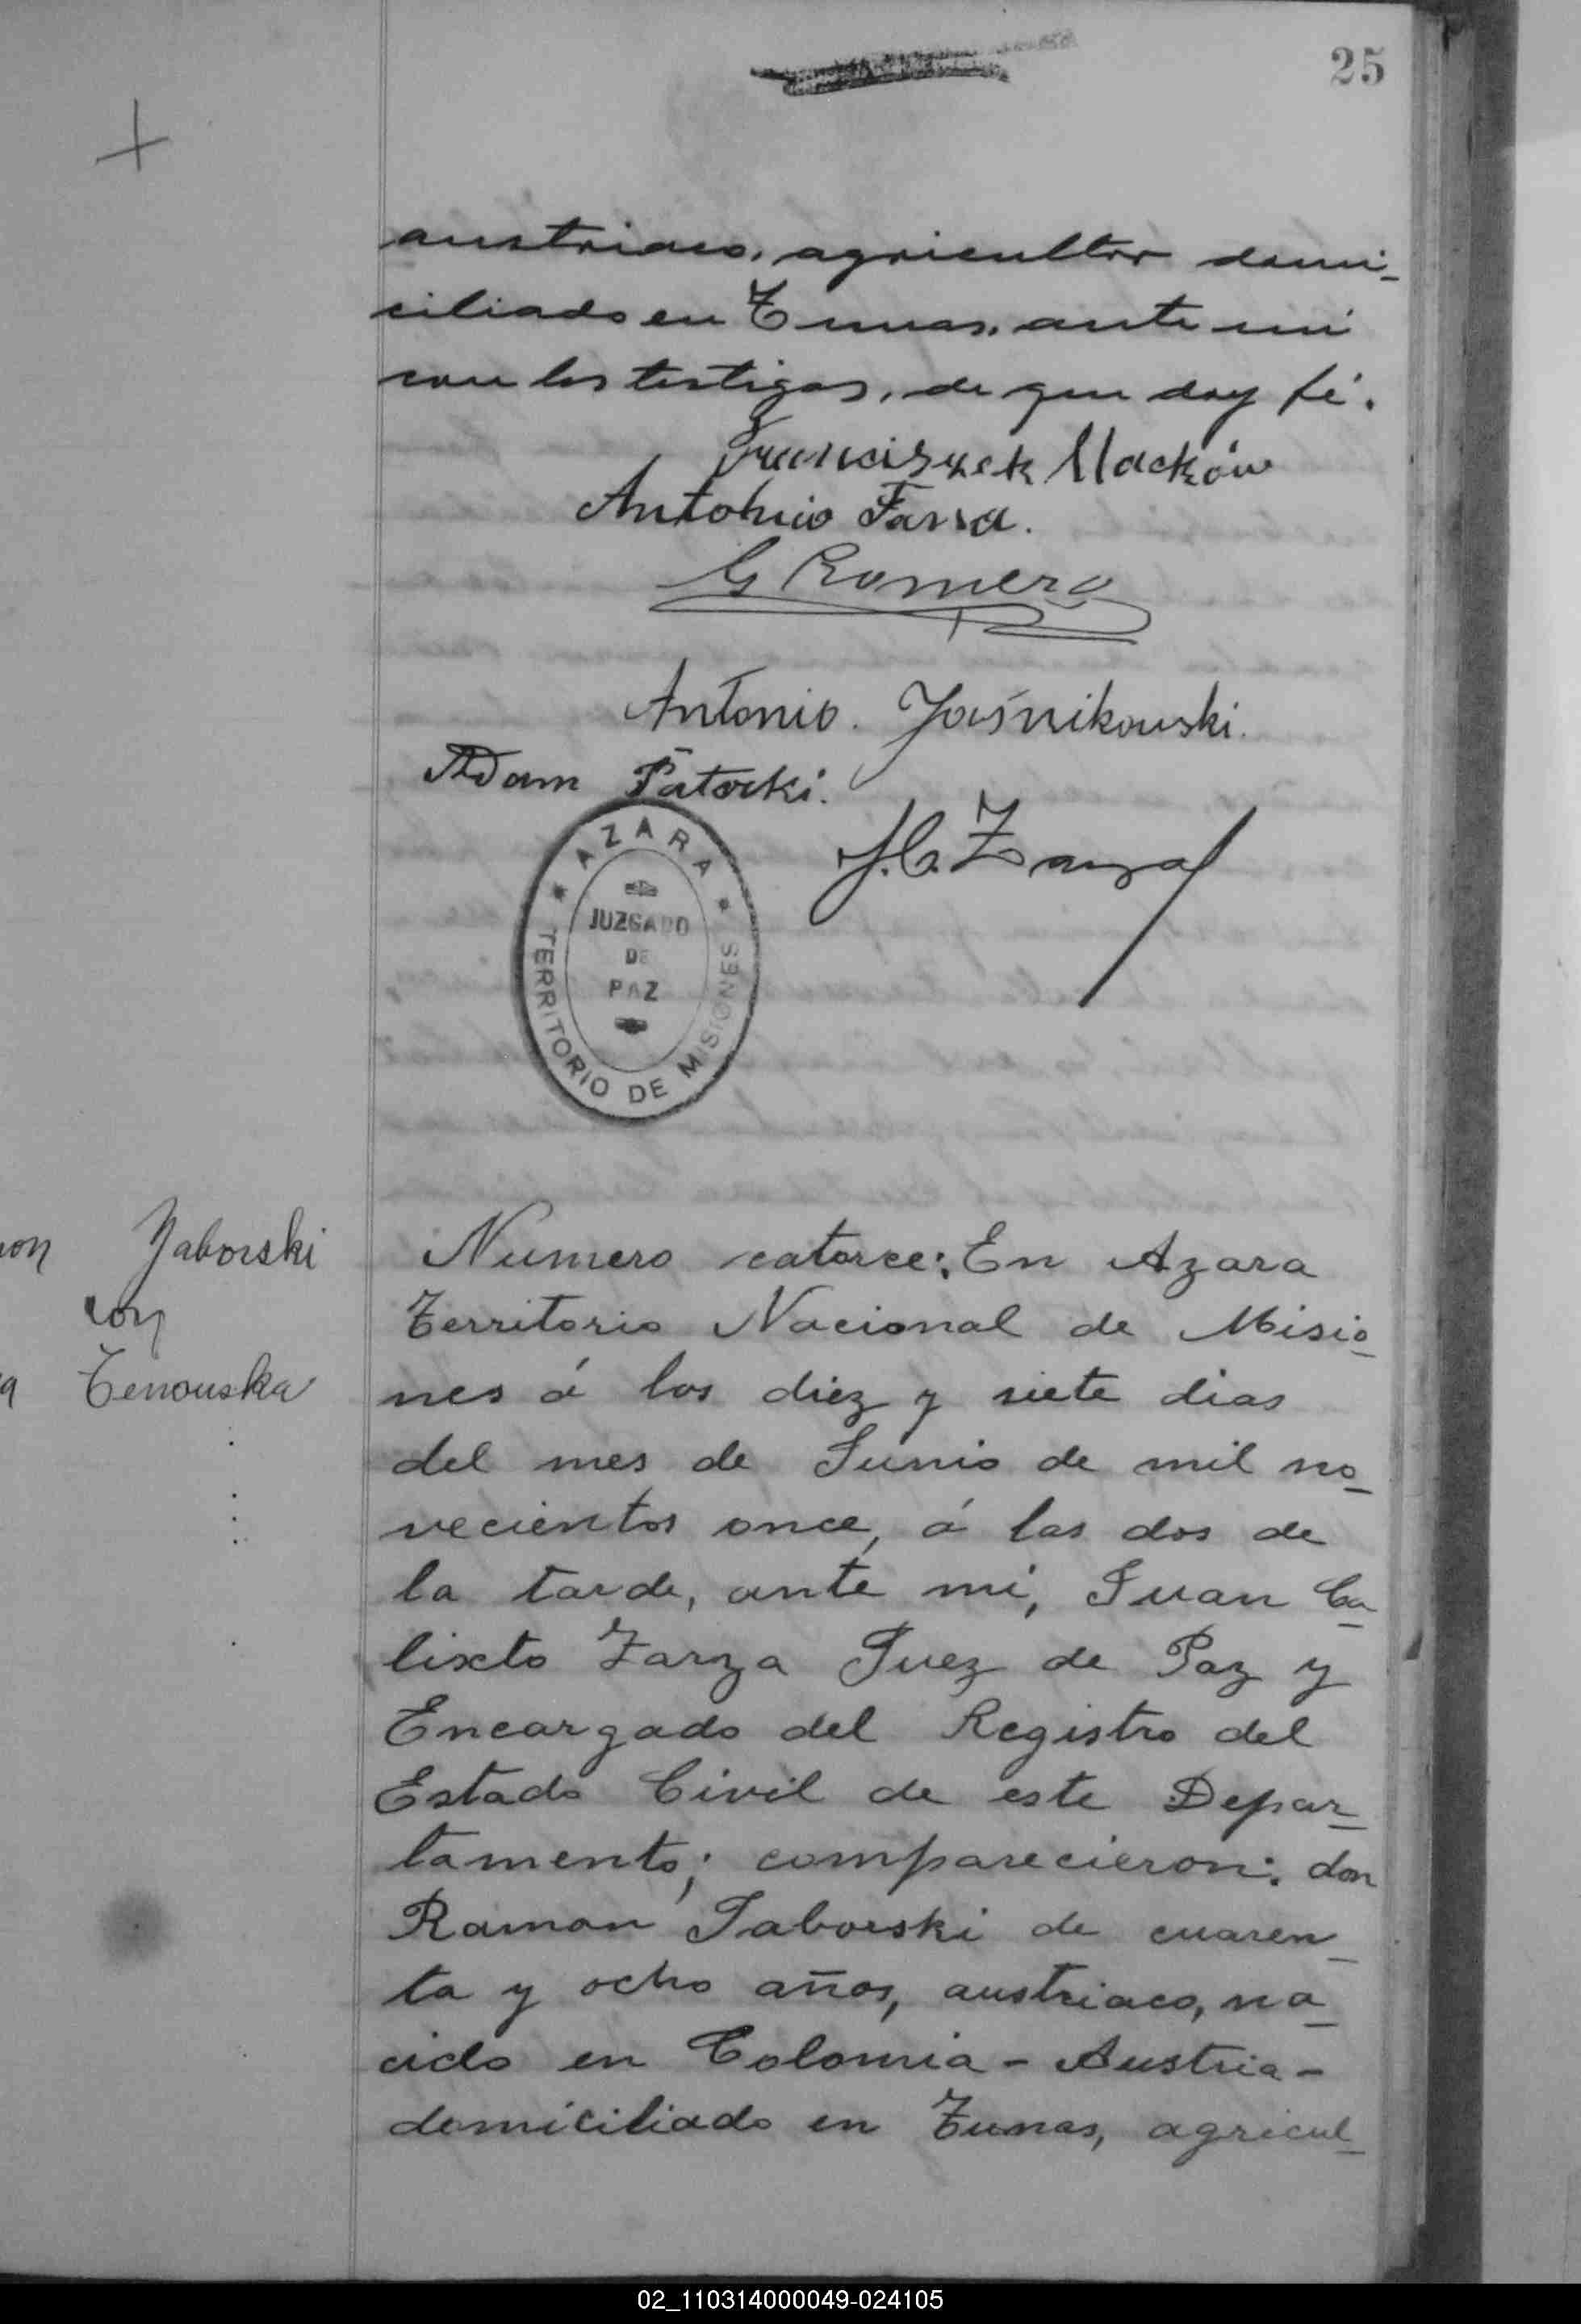 25
austriaco, agricultor domi-
ciliado en Tunas, ante mi
con los testigos, de que doy fé.
Franciszek Maćków
Antonio Farra.
G Romero
Antonio. Jaśnikowski.
Adam Patocki.
J. C. Zarza
* AZARA *
JUZGADO
DE
PAZ
TERRITORIO DE MISIONES
on Jaborski
con
a Tenouska
Numero catorce: En Azara
Territorio Nacional de Misio-
nes á los diez y siete dias
del mes de Junio de mil no-
vecientos once, á las dos de
la tarde, ante mi, Juan Ca-
lixto Zarza Juez de Paz y
Encargado del Registro del
Estado Civil de este Depar-
tamento; comparecieron: don
Ramon Jaborski de cuaren-
ta y ocho años, austriaco, na-
cido en Colomia - Austria -
domiciliado en Tunas, agricul-
02_110314000049-024105